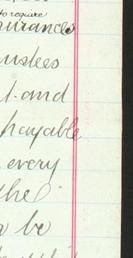 to require
urances
ustees
l. and
payable
every
the
be